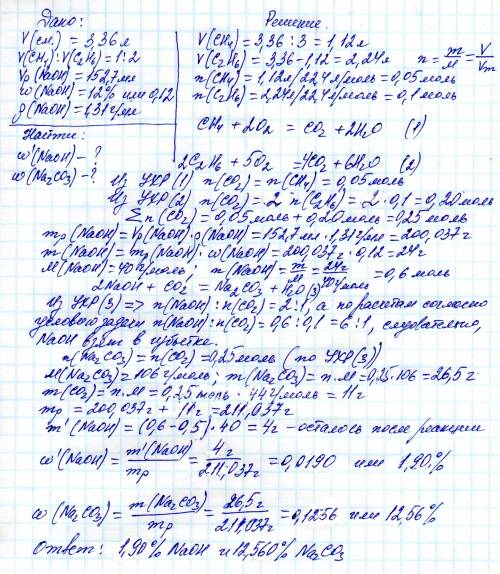 Дано:
Решение.
V(см.) = 3,36 л
V(CH4) = 3,36 : 3 = 1,12 л
V(CH4) : V(C2H6) = 1 : 2
V(C2H6) = 3,36 - 1,12 = 2,24 л
n = m/M = V/Vm
Vp(NaOH) = 152,7 мл
n(CH4) = 1,12 л / 22,4 л/моль = 0,05 моль
ω(NaOH) = 12% или 0,12
n(C2H6) = 2,24 л / 22,4 л/моль = 0,1 моль
ρ(NaOH) = 1,31 г/мл
CH4 + 2O2 = CO2 + 2H2O (1)
Найти:
ω'(NaOH) - ?
2C2H6 + 5O2 = 4CO2 + 6H2O (2)
ω(Na2CO3) - ?
Из УХР (1) n(CO2) = n(CH4) = 0,05 моль
Из УХР (2) n(CO2) = 2 n(C2H6) = 2 · 0,1 = 0,20 моль
Σn(CO2) = 0,05 моль + 0,20 моль = 0,25 моль
mp(NaOH) = Vp(NaOH) · ρ(NaOH) = 152,7 мл · 1,31 г/мл = 200,037 г
m(NaOH) = mp(NaOH) · ω(NaOH) = 200,037 г · 0,12 = 24 г
M(NaOH) = 40 г/моль; n(NaOH) = m/M = 24 г/40 г/моль = 0,6 моль
2NaOH + CO2 = Na2CO3 + H2O (3)
Из УХР (3) => n(NaOH) : n(CO2) = 2 : 1, а по расчетам согласно
условию задачи n(NaOH) : n(CO2) = 0,6 : 0,1 = 6 : 1, следовательно,
NaOH взят в избытке.
n(Na2CO3) = n(CO2) = 0,25 моль (по УХР(3))
M(Na2CO3) = 106 г/моль; m(Na2CO3) = n · M = 0,25 · 106 = 26,5 г
m(CO2) = n · M = 0,25 моль · 44 г/моль = 11 г
mp = 200,037 г + 11 г = 211,037 г
m'(NaOH) = (0,6 - 0,5) · 40 = 4 г - осталось после реакции
ω'(NaOH) = m'(NaOH)/mp = 4 г/211,037 г = 0,0190 или 1,90%
ω(Na2CO3) = m(Na2CO3)/mp = 26,5 г/211,037 г = 0,1256 или 12,56%
Ответ: 1,90% NaOH и 12,560% Na2CO3